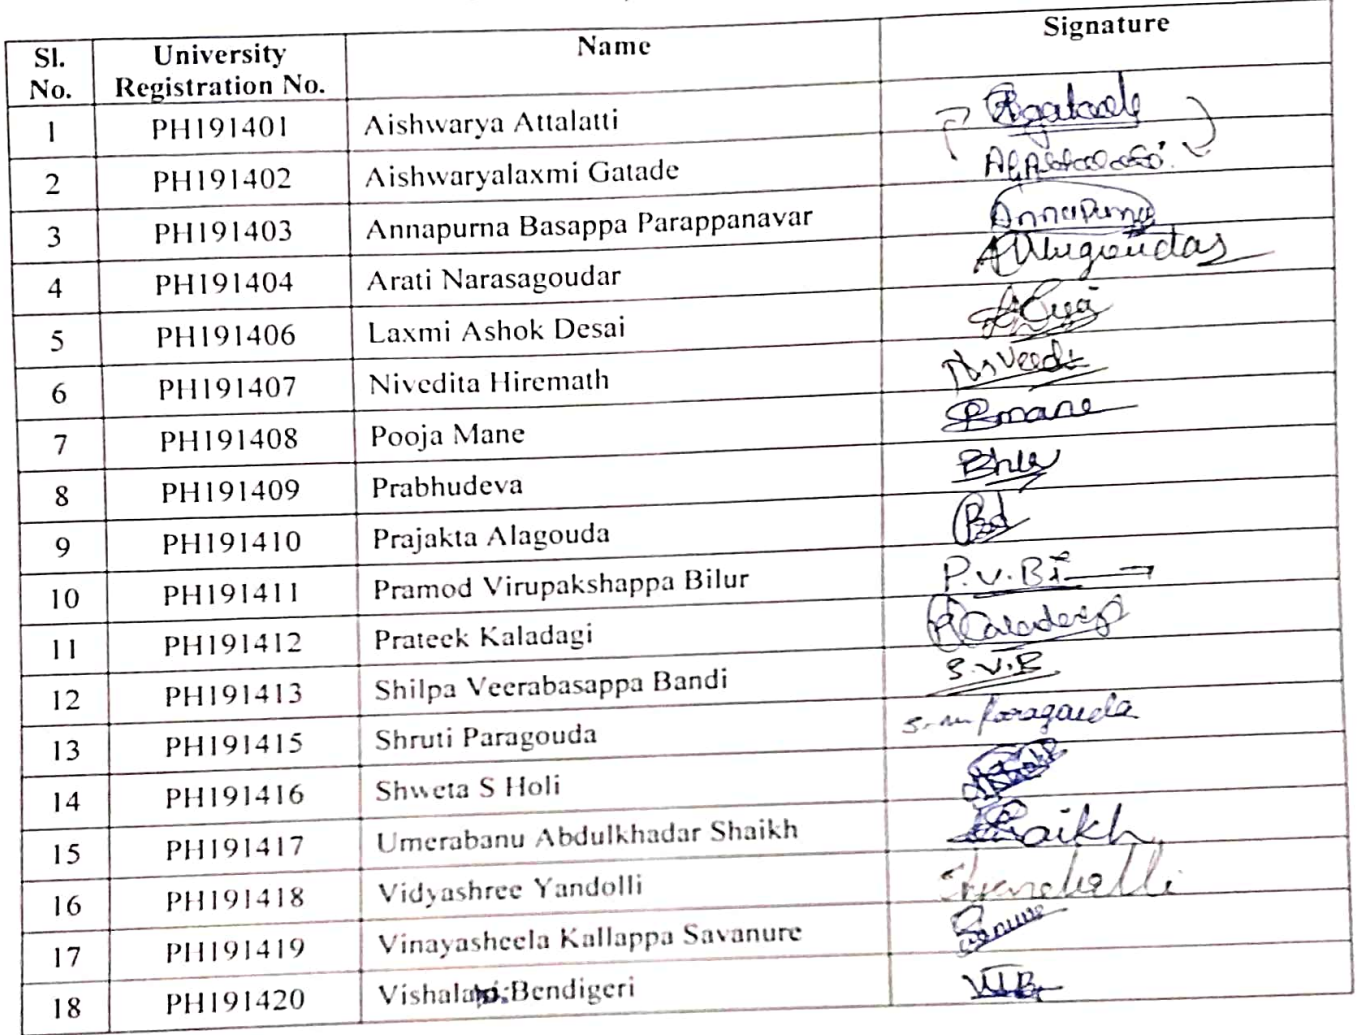 Sl. No. University Registration No. Name Signature
1 PH191401 Aishwarya Attalatti
2 PH191402 Aishwaryalaxmi Gatade
3 PH191403 Annapurna Basappa Parappanavar Annapurna
4 PH191404 Arati Narasagoudar
5 PH191406 Laxmi Ashok Desai
6 PH191407 Nivedita Hiremath
7 PH191408 Pooja Mane Pmane
8 PH191409 Prabhudeva
9 PH191410 Prajakta Alagouda
10 PH191411 Pramod Virupakshappa Bilur P.V.Bi
11 PH191412 Prateek Kaladagi
12 PH191413 Shilpa Veerabasappa Bandi S.V.B
13 PH191415 Shruti Paragouda
14 PH191416 Shweta S Holi
15 PH191417 Umerabanu Abdulkhadar Shaikh Shaikh
16 PH191418 Vidyashree Yandolli
17 PH191419 Vinayasheela Kallappa Savanure
18 PH191420 Bendigeri